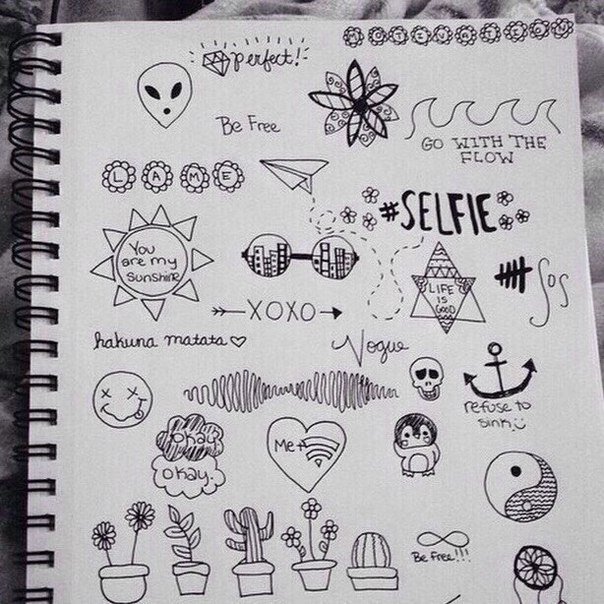 perfect!
MOTIVATION
Be Free
GO WITH THE
FLOW
LAME
#SELFIE
You
are my
Sunshine
LIFE
IS
GOOD
SOS
XOXO
hakuna matata ♡
Vogue
refuse to
sink
okay
okay.
Me+
Be free!!!